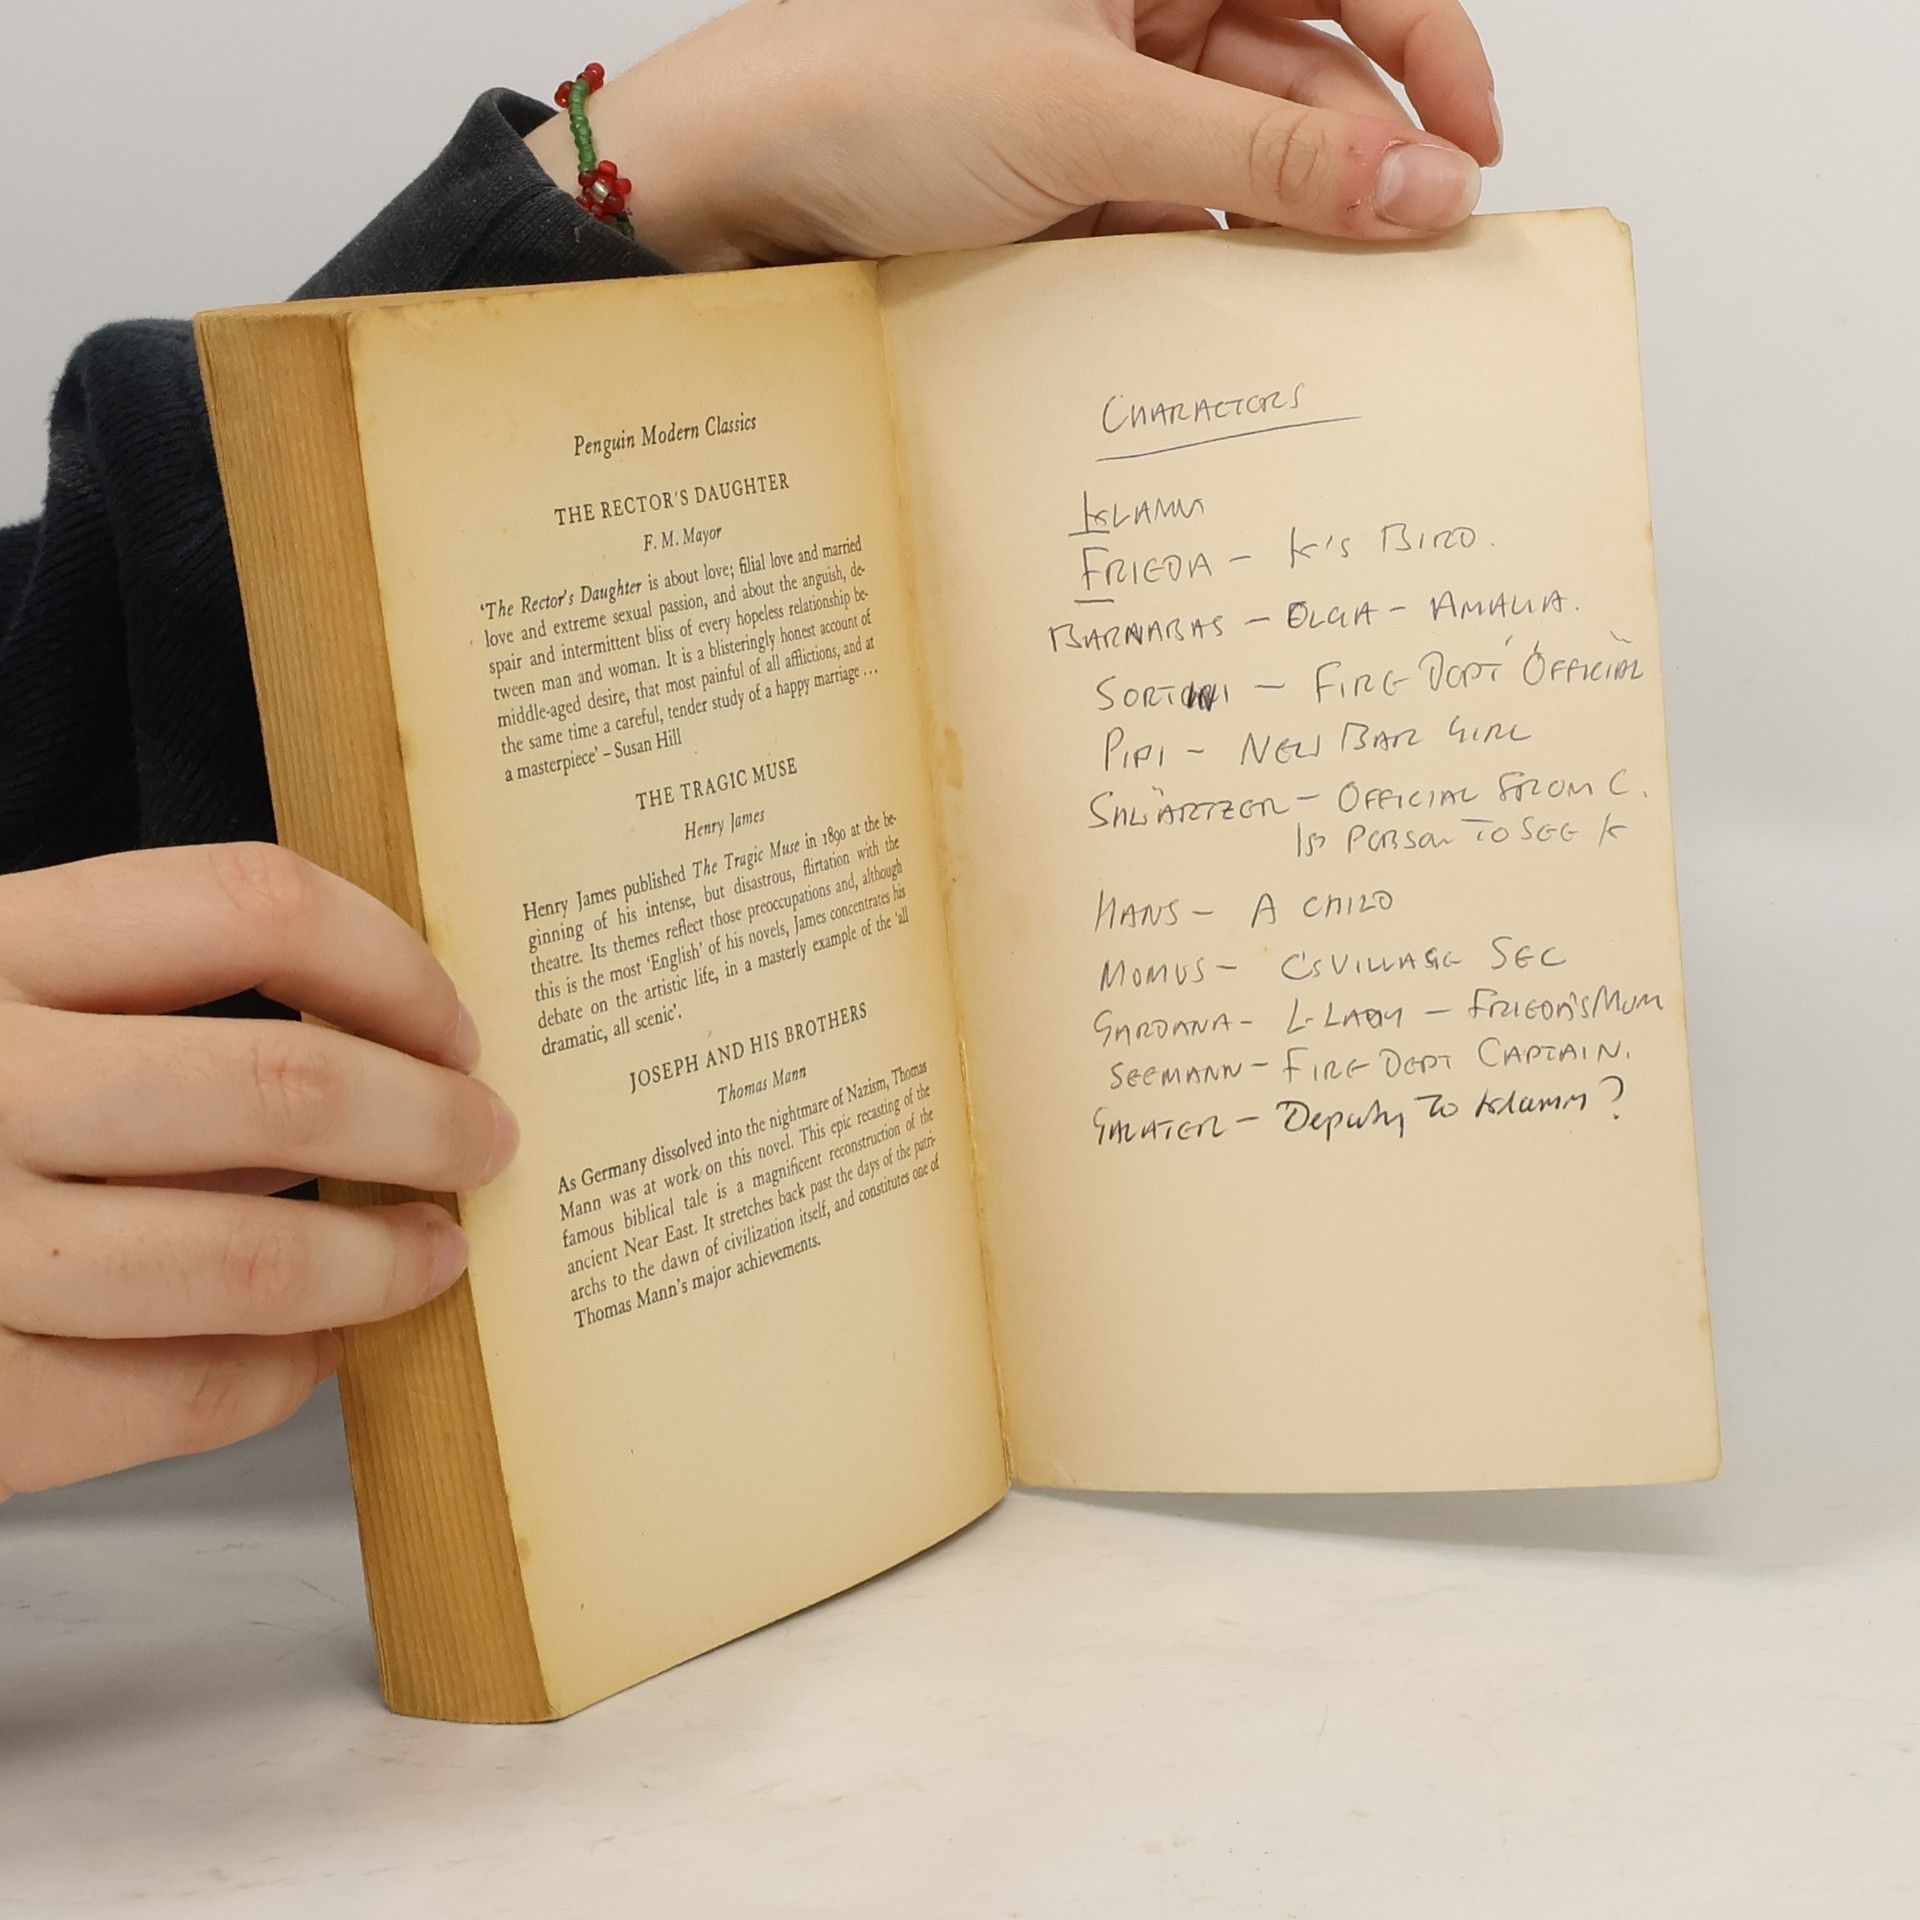 Penguin Modern Classics
THE RECTOR'S DAUGHTER
F. M. Mayor
'The Rector's Daughter is about love; filial love and married
love and extreme sexual passion, and about the anguish, de-
spair and intermittent bliss of every hopeless relationship be-
tween man and woman. It is a blisteringly honest account of
middle-aged desire, that most painful of all afflictions, and at
the same time a careful, tender study of a happy marriage ...
a masterpiece' – Susan Hill
THE TRAGIC MUSE
Henry James
Henry James published The Tragic Muse in 1890 at the be-
ginning of his intense, but disastrous, flirtation with the
theatre. Its themes reflect those preoccupations and, although
this is the most 'English' of his novels, James concentrates his
debate on the artistic life, in a masterly example of the 'all
dramatic, all scenic'.
JOSEPH AND HIS BROTHERS
Thomas Mann
As Germany dissolved into the nightmare of Nazism, Thomas
Mann was at work on this novel. This epic recasting of the
famous biblical tale is a magnificent reconstruction of the
ancient Near East. It stretches back past the days of the patri-
archs to the dawn of civilization itself, and constitutes one of
Thomas Mann's major achievements.
CHARACTERS
KLAMM
FRIEDA – K'S BIRD.
BARNABAS – OLGA – AMALIA.
SORTINI – FIRE DEPT "OFFICIAL"
PIPI – NEW BAR GIRL
SWARTZER – OFFICIAL FROM C.
1st PERSON TO SEE K
HANS – A CHILD
MOMUS – C'S VILLAGE SEC
GARDANA – L-LADY – FRIEDA'S MUM
SEEMANN – FIRE DEPT CAPTAIN.
GALATER – Deputy To Klamm?